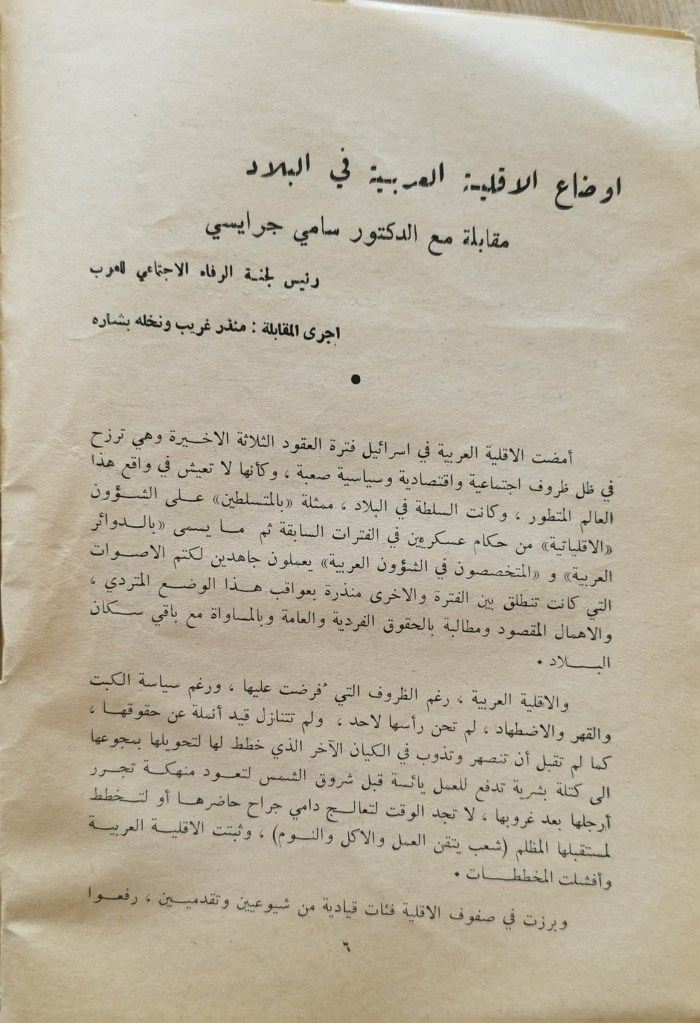 اوضاع الاقليـة العربـية في البلاد
مقابلة مع الدكتور سامي جرايسي
رئيس لجنـة الرفاه الاجتماعي للعرب
اجرى المقابلة : منذر غريب ونخله بشاره
●
أمضت الاقلية العربية في اسرائيل فترة العقود الثلاثة الاخيرة وهي ترزح
في ظل ظروف اجتماعية واقتصادية وسياسية صعبة ، وكأنها لا تعيش في واقع هذا
العالم المتطور ، وكانت السلطة في البلاد ، ممثلة «بالمتسلطين» على الشـؤون
«الاقلياتية» من حكام عسكريين في الفترات السابقة ثم ما يسمى «بالـدوائر
العربية» و «المتخصصون في الشؤون العربية» يعملون جاهدين لكتم الاصوات
التي كانت تنطلق بين الفترة والاخرى منذرة بعواقب هـذا الوضـع المتردي ،
والاهمال المقصود ومطالبة بالحقوق الفردية والعامة وبالمساواة مع باقي سكـان
البـــلاد .
والاقلية العربية ، رغم الظروف التي فُرضت عليها ، ورغم سياسة الكبت
والقهر والاضطهاد ، لم تحن رأسها لاحد ، ولم تتنازل قيد أنملة عن حقوقهـا ،
كما لم تقبل أن تنصهر وتذوب في الكيان الآخر الذي خطط لها لتحويلها بمجوعها
الى كتلة بشرية تدفع للعمل يائسة قبل شروق الشمس لتعود منهكـة تجـرر
أرجلها بعد غروبها ، لا تجد الوقت لتعالـج دامي جراح حاضرهـا أو لتـخطط
لمستقبلها المظلم (شعب يتقن العمل والاكل والنـوم) ، وثبتت الاقلية العربية
وأفشلت المخططـات .
وبرزت في صفوف الاقلية فئات قيادية من شيوعيين وتقدميـين ، رفعـوا
٦